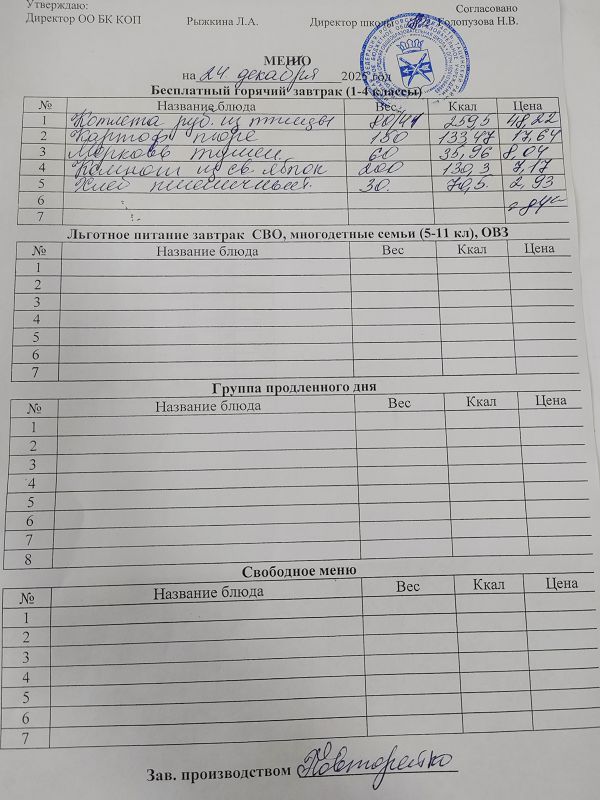 Утверждаю: Согласовано
Директор ОО БК КОП Рыжкина Л.А. Директор школы Голопузова Н.В.
МЕНЮ
на 24 декабря 2025 год
Бесплатный горячий завтрак (1-4 классы)
№ Название блюда Вес Ккал Цена
1 Котлета руб. из птицы 80/41 259,5 48,22
2 Картоф пюре 150 133,47 17,64
3 Морковь тушен. 60 35,96 8,04
4 Компот из св. яблок 200 130,3 7,17
5 Хлеб пшеничный. 30. 70,5. 2,93
6
7
Льготное питание завтрак СВО, многодетные семьи (5-11 кл), ОВЗ
№ Название блюда Вес Ккал Цена
1
2
3
4
5
6
7
Группа продленного дня
№ Название блюда Вес Ккал Цена
1
2
3
4
5
6
7
8
Свободное меню
№ Название блюда Вес Ккал Цена
1
2
3
4
5
6
7
Зав. производством